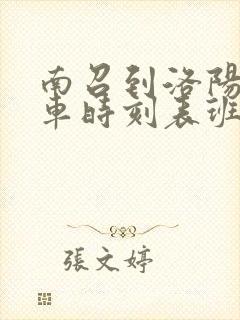 南召到洛陽
車時刻表班
張文婷